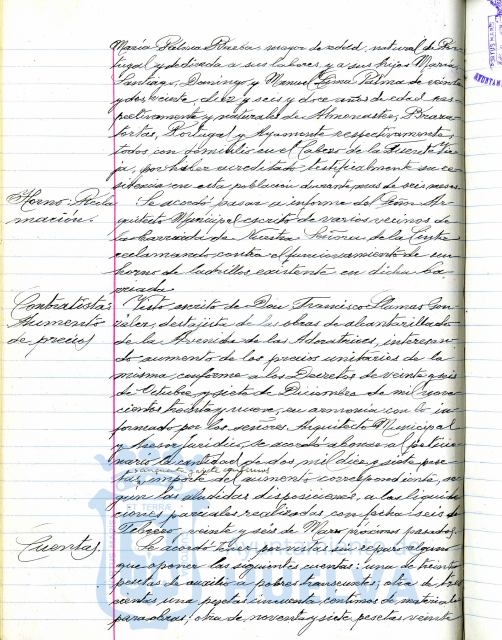 María Palma Rueba, mayor de edad, natural de Por-
tugal y dedicada a sus labores, y a sus hijos María
Santiago, Domingo y Manuel Palma de veinte
y dos, veinte, diez y seis y doce años de edad, res-
pectivamente y naturales de Almonaster,
Portugal y Ayamonte respectivamente,
todos con domicilio en el Cabezo de la Fuente Vie-
ja, por haber acreditado testificalmente su re-
sidencia en esta población durante mas de seis meses.
Horno-Recla-
mación.
Se acordó pasar a informe del Señor Ar-
quitecto Municipal escrito de varios vecinos de
la barriada de Nuestra Señora de la Cinta
reclamando contra el funcionamiento de un
horno de ladrillos existente en dicha ba-
rriada.
Contratista:
Aumento
de precios
Visto escrito de Don Francisco Llamas Gon-
zález, destajista de las obras de alcantarillado
de la Avenida de las Adoratrices, interesan-
do aumento de los precios unitarios de la
misma conforme a los Decretos de veinte y seis
de Octubre y siete de Diciembre de mil nove-
cientos treinta y nueve, en armonía con lo in-
formado por los señores Arquitecto Municipal
y Asesor Jurídico, se acordó abonar al peticio-
nario la cantidad de dos mil diez y siete pese-
tas, importe del aumento correspondiente, se-
gún las aludidas disposiciones, a las liquida-
ciones parciales realizadas con fecha seis de
Febrero y veinte y seis de Marzo pasados.
Cuentas
Se acordó tener por vistas sin reparo alguno
que oponer las siguientes cuentas: una de treinta
pesetas de auxilio a pobres transeuntes, otra de tres-
cientas una pesetas cincuenta céntimos de materiales
para obras; otra de noventa y siete pesetas veinte
Ayuntamiento de
HUELVA
AYUNTAM